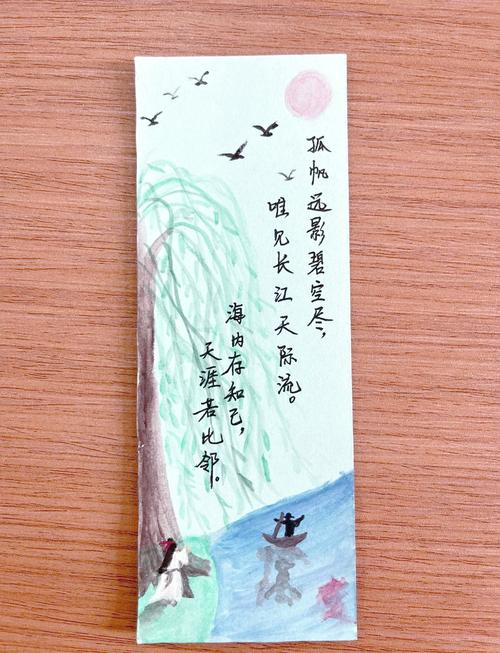 孤帆远影碧空尽，
唯见长江天际流。
海内存知己，
天涯若比邻。